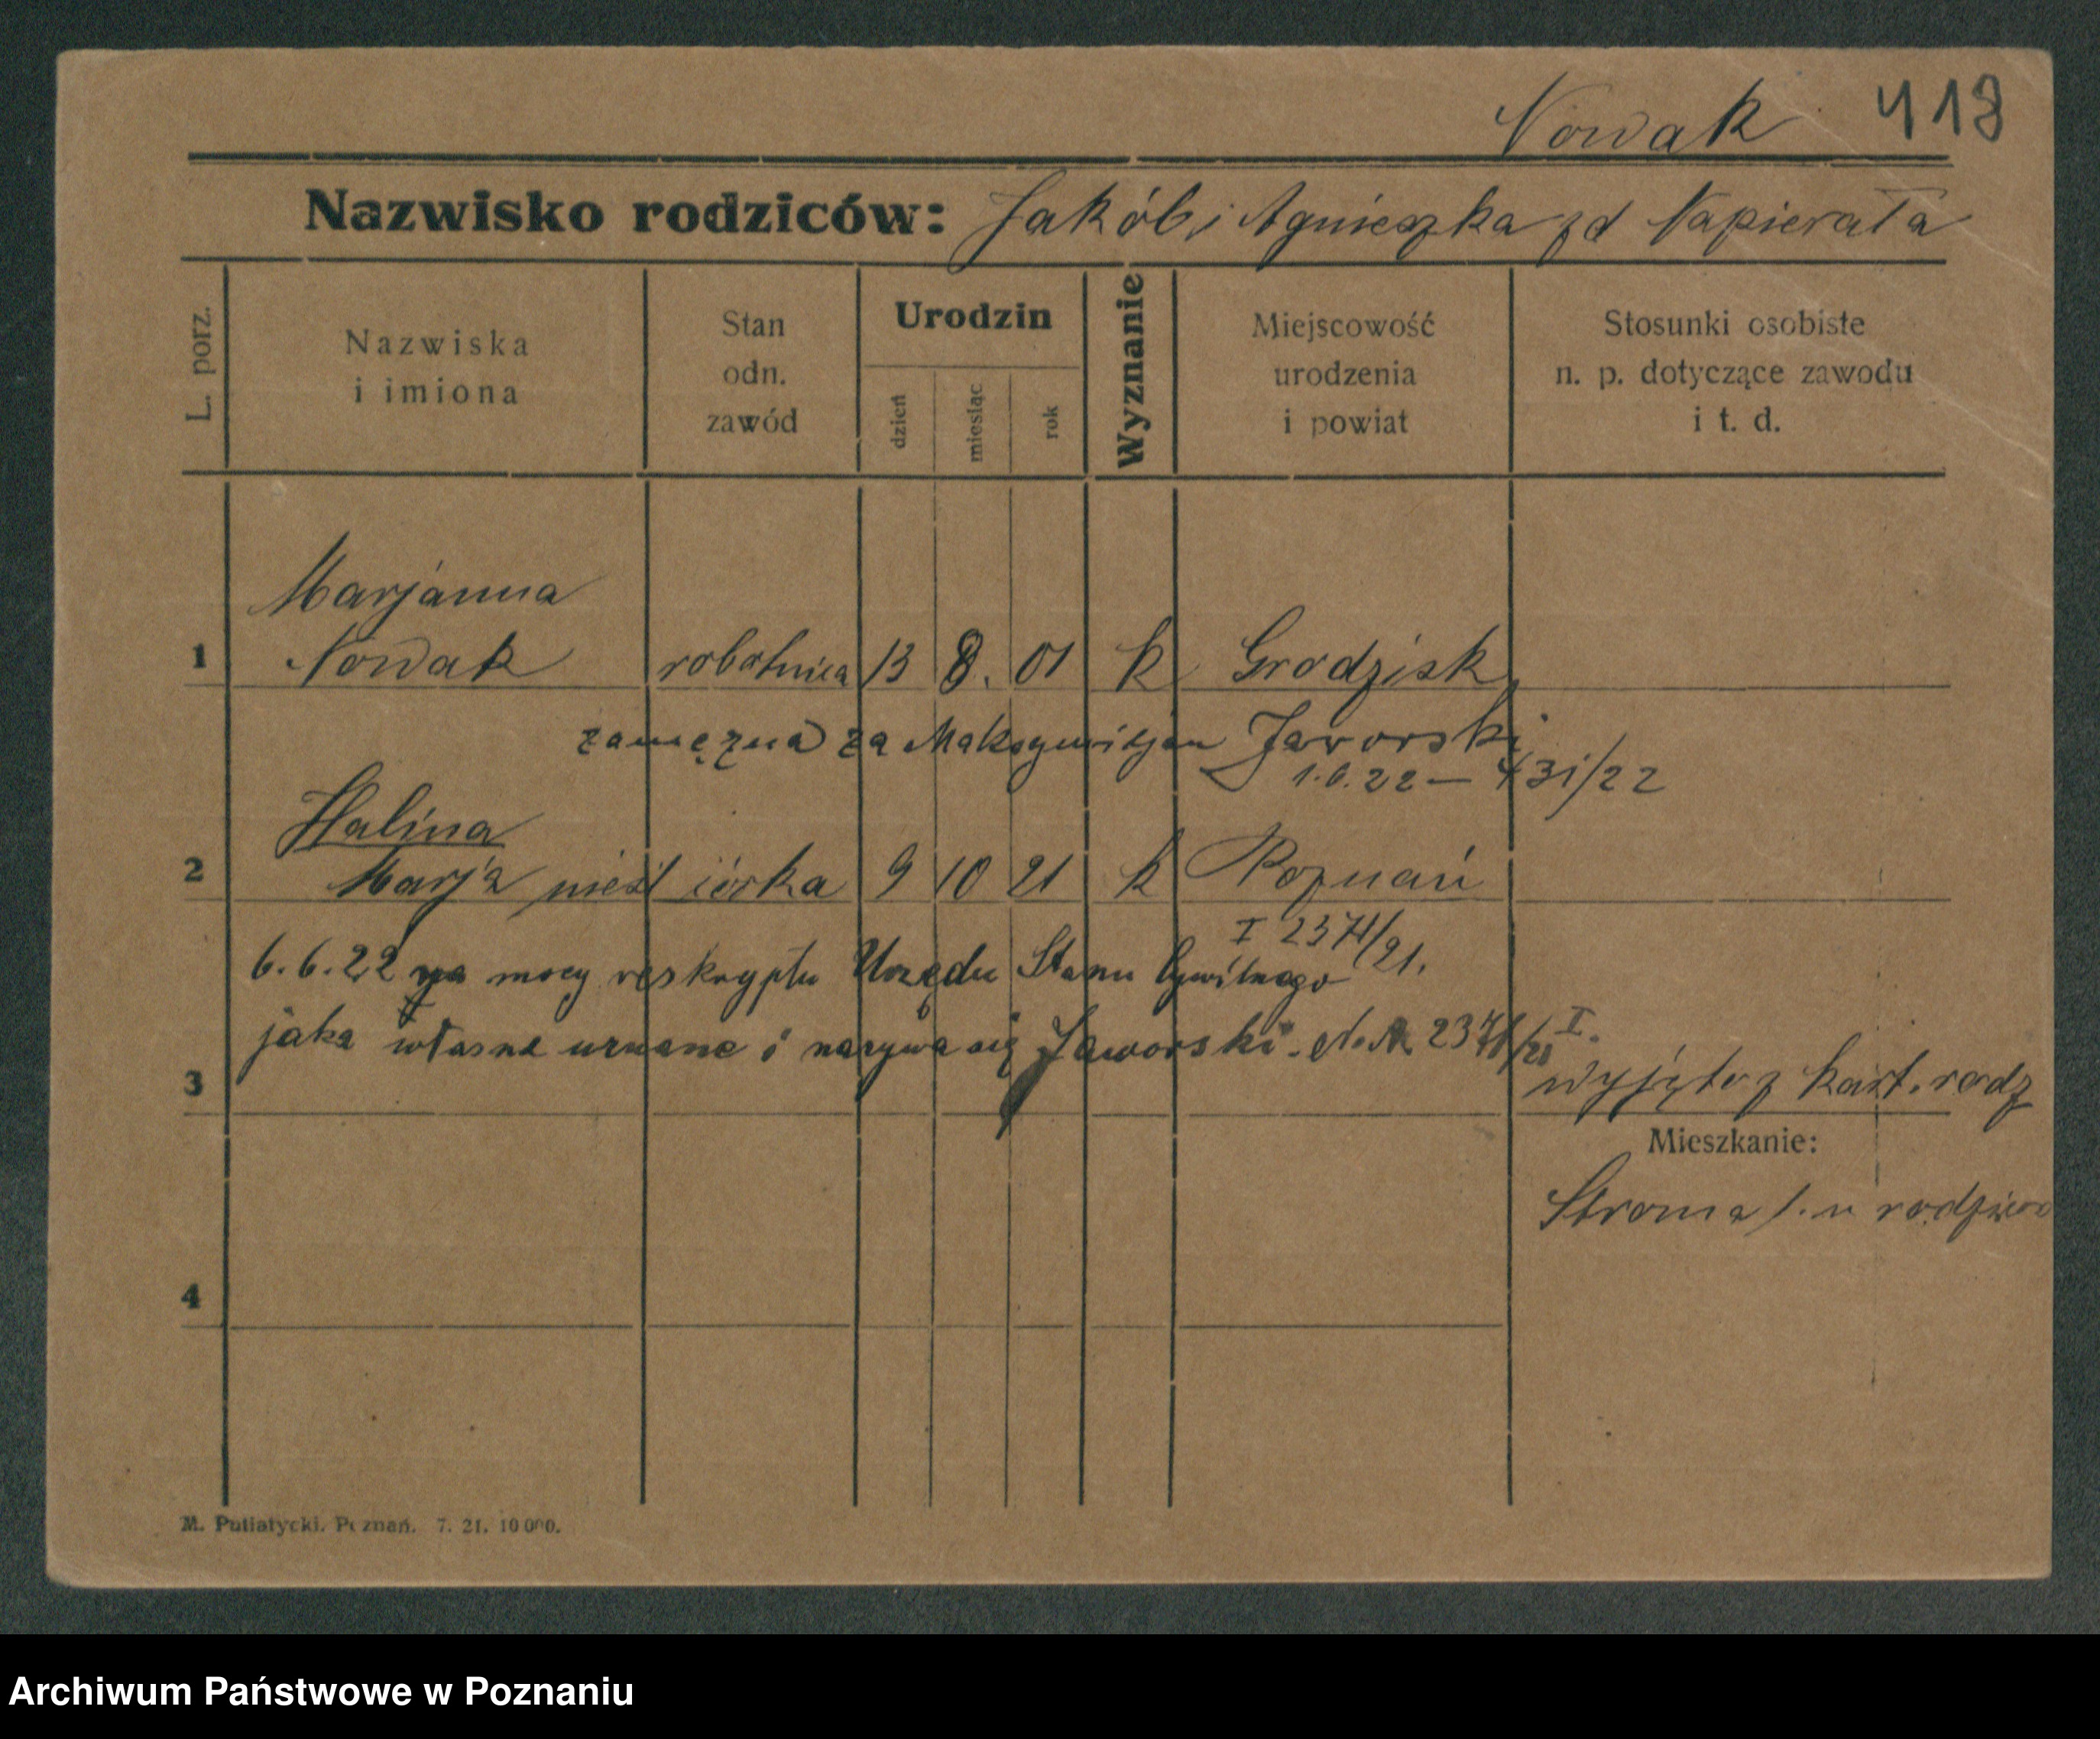 Nowak 418
Nazwisko rodziców: Jakób i Agnieszka zd Napierała
L. porz.
Nazwiska
i imiona
Stan
odn.
zawód
Urodzin
dzień
miesiąc
rok
Wyznanie
Miejscowość
urodzenia
i powiat
Stosunki osobiste
n. p. dotyczące zawodu
i t. d.
Marjanna
1 Nowak robotnica 13 8. 01 k Grodzisk
zamężna za Maksymiljan Jaworski
1.6.22 — 431/22
Halina
2 Marja nieśl córka 9 10 21 k Poznań
I 2371/21.
6.6.22 na mocy reskryptu Urzędu Stanu Cywilnego
jako własne uznane i nazywa się Jaworski. 2371/21 I.
3 wyjęto z kart. rodz
Mieszkanie:
Stroma 1. u rodziców
4
M. Putiatycki. Poznań. 7. 21. 10 000.
Archiwum Państwowe w Poznaniu